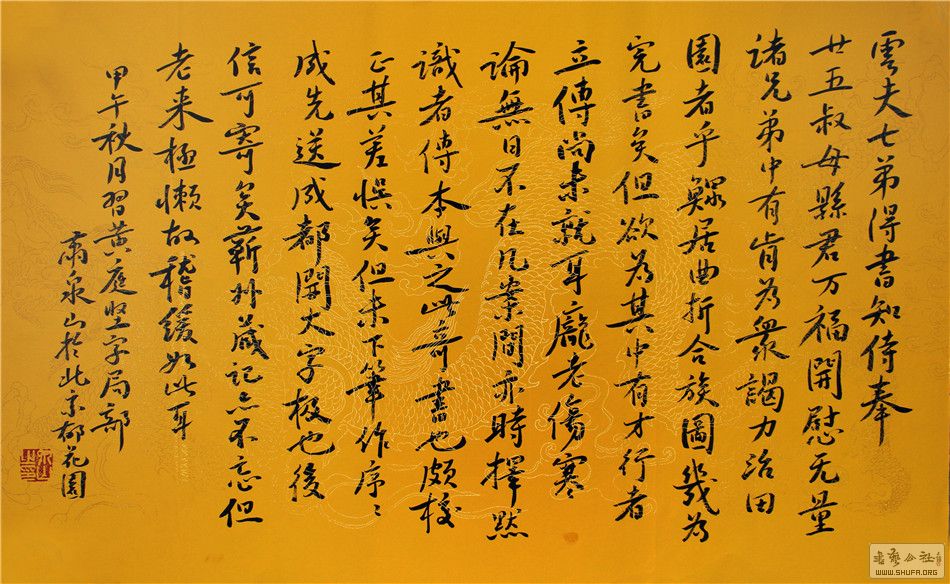 雲夫七弟得書知侍奉
廿五叔母縣君万福開慰无量
諸兄弟中有肯為衆竭力治田
園者乎鰥居曲折合族圖幾為
完書矣但欲為其中有才行者
立傳尚未就耳龐老傷寒
論無日不在几案間亦時擇默
識者傳本與之此奇書也頗校
正其差悮矣但未下筆作序〻
成先送成都開大字板也後
信可寄矣蘄州藏記亦不忘但
老来極懒故稽緩如此耳
甲午秋月習黄庭坚字局部
泉山於北京郁花園
書藝公社
WWW.SHUFA.ORG